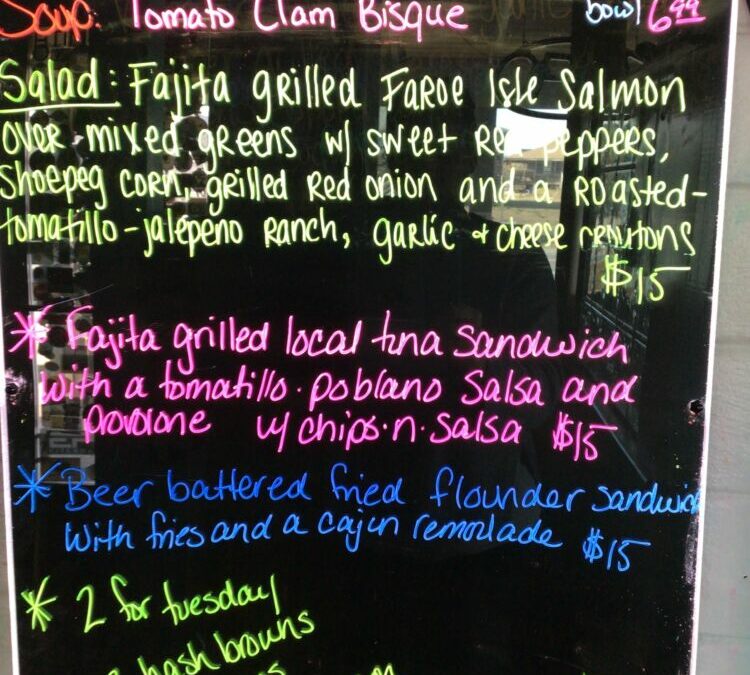 Soup: Tomato Clam Bisque bowl 6.99
Salad: Fajita grilled Faroe Isle Salmon
over mixed greens w/ sweet Red peppers,
Shoepeg corn, grilled Red onion and a Roasted-
tomatillo-jalepeno Ranch, garlic & cheese croutons
$15
* Fajita grilled local tuna sandwich
with a tomatillo-poblano Salsa and
provolone w/ chips-n-salsa $15
* Beer battered fried flounder sandwich
with fries and a cajun remoulade $15
* 2 for tuesday
hash browns